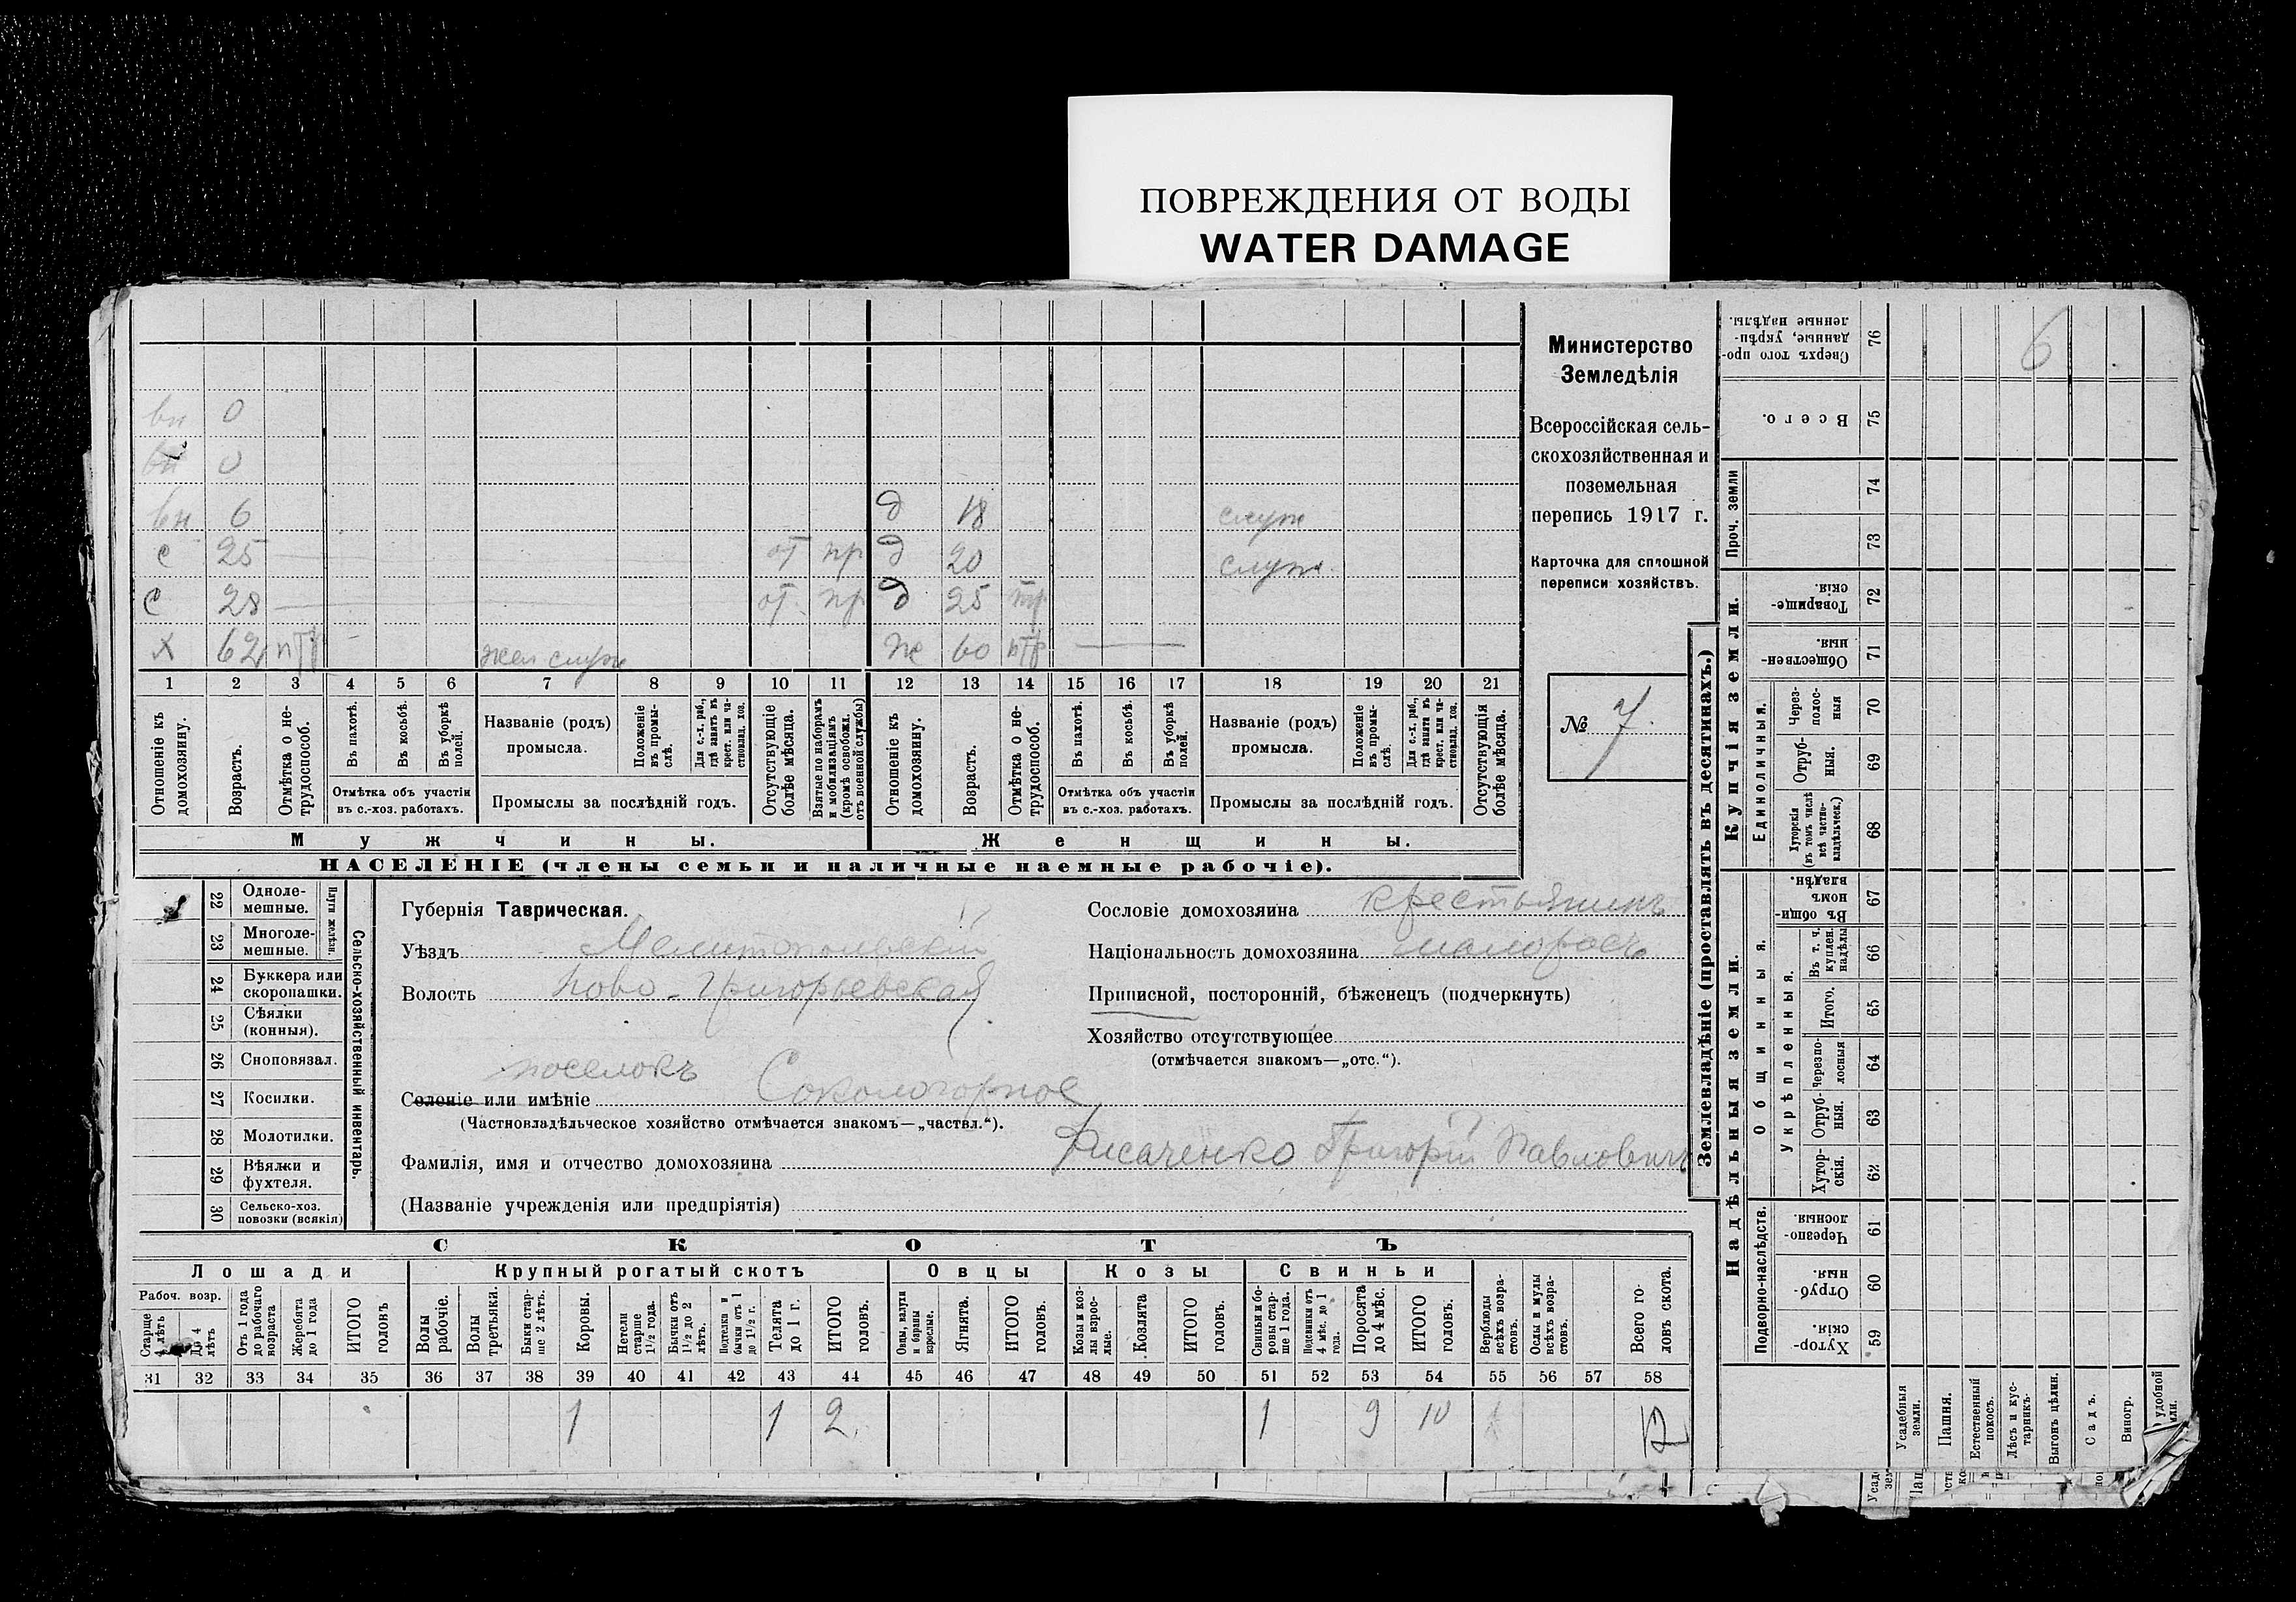 ПОВРЕЖДЕНИЯ ОТ ВОДЫ
WATER DAMAGE
вн 0
вн 0
вн 6 д 18 служ
с 25 от пр д 20 служ.
с 28 от. пр д 25
х 62 нтр жел служ ж 60 нтр
1 2 3 4 5 6 7 8 9 10 11 12 13 14 15 16 17 18 19 20 21
Отношеніе къ домохозяину.
Возрастъ.
Отмѣтка о не-трудоспособ.
Въ пахотѣ.
Въ косьбѣ.
Въ уборкѣ полей.
Отмѣтка объ участіи
въ с.-хоз. работахъ.
Названіе (родъ)
промысла.
Положеніе въ промы-слѣ.
Для с.-х. раб., гдѣ занятъ въ крест. или ча-стновлад. хоз.
Промыслы за послѣдній годъ.
Отсутствующіе болѣе мѣсяца.
Взятые по наборамъ и мобилизаціямъ (кромѣ освобожд. отъ военной службы)
Отношеніе къ домохозяину.
Возрастъ.
Отмѣтка о не-трудоспособ.
Въ пахотѣ.
Въ косьбѣ.
Въ уборкѣ полей.
Отмѣтка объ участіи
въ с.-хоз. работахъ.
Названіе (родъ)
промысла.
Положеніе въ промы-слѣ.
Для с.-х. раб., гдѣ занята въ крест. или ча-стновлад. хоз.
Промыслы за послѣдній годъ.
Отсутствующія болѣе мѣсяца.
Мужчины.
Женщины.
НАСЕЛЕНІЕ (члены семьи и наличные наемные рабочіе).
Министерство
Земледѣлія
Всероссійская сель-
скохозяйственная и
поземельная
перепись 1917 г.
Карточка для сплошной
переписи хозяйствъ.
№ 7.
22 Одноле-мешные.
23 Многоле-мешные.
Плуги желѣзн.
24 Буккера или скоропашки.
25 Сѣялки (конныя).
26 Сноповязал.
27 Косилки.
28 Молотилки.
29 Вѣялки и фухтеля.
30 Сельско-хоз. повозки (всякія)
Сельско-хозяйственный инвентарь.
Губернія Таврическая.
Уѣздъ Мелитопольскій
Волость Ново-Григорьевская
поселокъ
Селеніе или имѣніе Сокологорное
(Частновладѣльческое хозяйство отмѣчается знакомъ—„частвл.“).
Фамилія, имя и отчество домохозяина Лисаченко Григорій Павловичъ
(Названіе учрежденія или предпріятія)
Сословіе домохозяина крестьянинъ
Національность домохозяина малороссъ
Приписной, посторонній, бѣженецъ (подчеркнуть)
Хозяйство отсутствующее
(отмѣчается знакомъ—„отс.“).
СКОТЪ
Лошади
Крупный рогатый скотъ
Овцы
Козы
Свиньи
Рабоч. возр.
Старше 4 лѣтъ
До 4 лѣтъ
Отъ 1 года до рабочаго возраста
Жеребята до 1 года
ИТОГО головъ
Волы рабочіе.
Волы третьяки.
Быки стар-ше 2 лѣтъ.
Коровы.
Нетели старше 1½ года.
Бычки отъ 1½ до 2 лѣтъ.
Подтелки и бычки отъ 1 до 1½ г.
Телята до 1 г.
ИТОГО головъ.
Овцы, валухи и бараны взрослые.
Ягнята.
ИТОГО головъ.
Козы и коз-лы взрос-лые.
Козлята
ИТОГО головъ.
Свиньи и бо-ровы стар-ше 1 года.
Подсвинки отъ 4 мѣс. до 1 года.
Поросята до 4 мѣс.
ИТОГО головъ.
Верблюды всѣхъ возра-стовъ.
Ослы и мулы всѣхъ возра-стовъ.
Всего го-ловъ скота.
31 32 33 34 35 36 37 38 39 40 41 42 43 44 45 46 47 48 49 50 51 52 53 54 55 56 57 58
1 1 2 1 9 10
Землевладѣніе (проставлять въ десятинахъ.)
Сверхъ того про-данные, укрѣп-ленные надѣлы. 76 6
Всего. 75
Проч. земли 74
73
Купчія земли.
Товарище-скія. 72
Обществен-ныя. 71
Единоличныя.
Через-полос-ныя 70
Отруб-ныя. 69
Хуторскія (въ томъ числѣ всѣ частно-владѣльческ.) 68
Надѣльныя земли.
Общинныя.
Въ общин-номъ владѣн. 67
Укрѣпленныя.
Въ т. ч. куплен. надѣлы 66
Итого. 65
Черезпо-лосныя 64
Отруб-ныя. 63
Хутор-скія. 62
Подворно-наслѣдств.
Черезпо-лосныя. 61
Отруб-ныя. 60
Хутор-скія. 59
Усадебныя земли.
Пашня.
Естественный покосъ.
Лѣсъ и кус-тарникъ.
Выгонъ цѣлин.
Садъ.
Виногр.
удобной